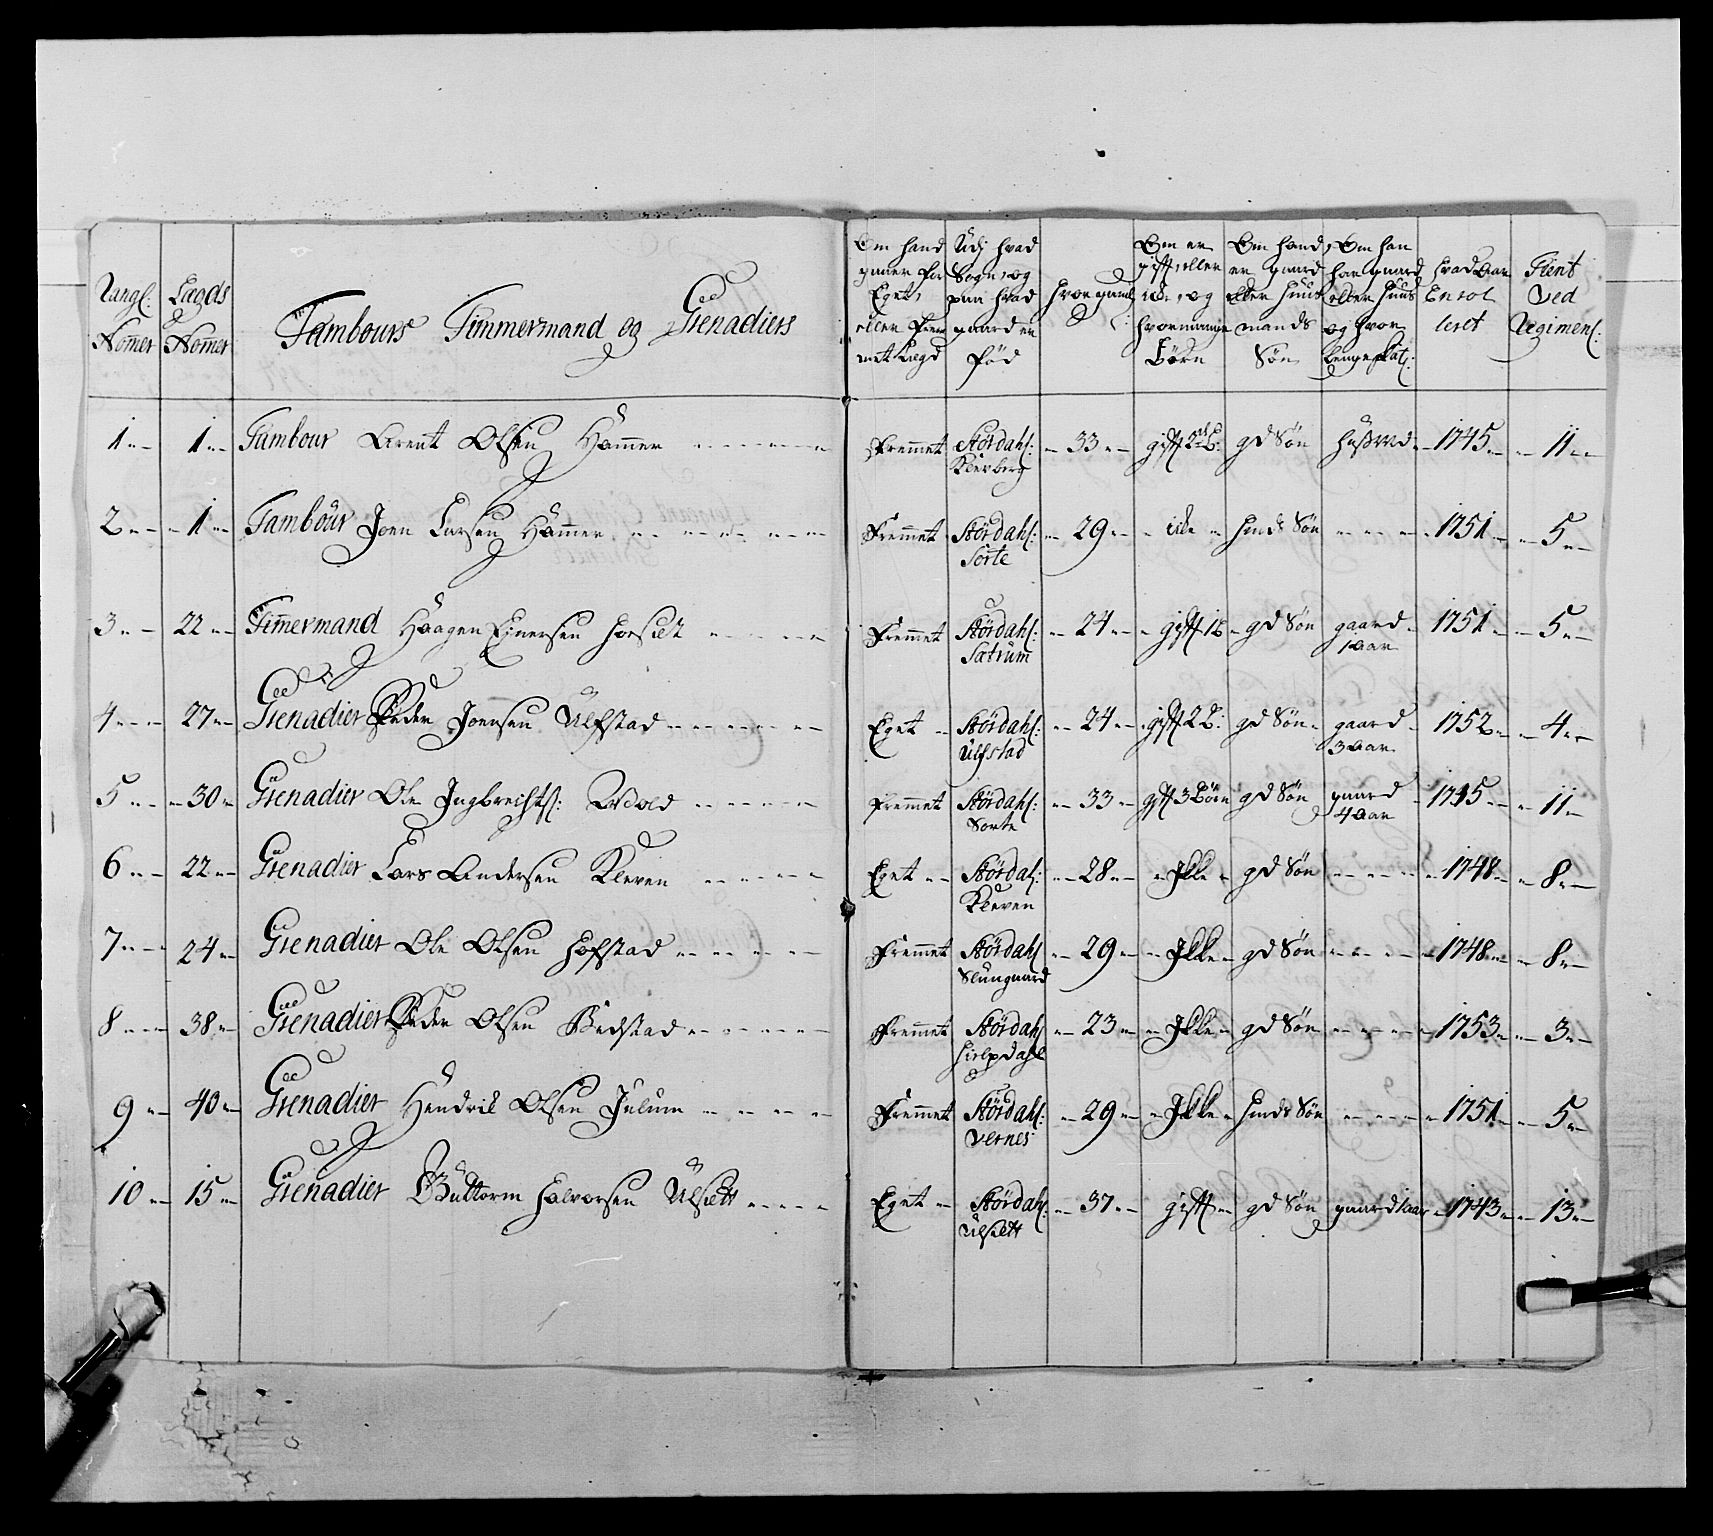 Rangs: Nomer | Lægds Nomer | Tambours Timmermand og Grenadiers | Om hand gaaer for Eget, eller fremmet Lægd | Udj hvad Sogn, og paa hvad gaard er fød | hvor gaml: | Om er gift, eller eide, og hvormange Børn | Om hand er gaard eller huusmands Søn | Om han har gaard eller huus og hvor længe ... | hvad Aar Enrolleret | Tient Ved Regimen:
1 | 1 | Tambour Arent Olsen Hammer | Fremmet | Størdahl: Klevberg | 33 | gift 2 B: | gd Søn | | 1745 | 11
2 | 1 | Tambour Joen Larsen Hammer | Fremmet | Størdahl: Sorte | 29 | icke | hmds Søn | | 1751 | 5
3 | 22 | Timmermand Haagen Einersen | Fremmet | Størdahl: Satrum | 24 | gift 1 B | gd Søn | gaard 1 Aar | 1751 | 5
4 | 27 | Grenadier Peder Joensen Ulfstad | Eget | Størdahl: Ulfstad | 24 | gift 2 B: | gd Søn | gaard 3 Aar | 1752 | 4
5 | 30 | Grenadier Ole Ingbrechts: Wold | Fremmet | Størdahl: Sorte | 33 | gift 3 Børn | gd Søn | gaard 4 Aar | 1745 | 11
6 | 22 | Grenadier Lars Andersen Kleven | Eget | Størdal: Kleven | 28 | Ikke | gd Søn | | 1748 | 8
7 | 24 | Grenadier Ole Olsen Hofstad | Fremmet | Størdahl Slungaard | 29 | Ikke | gd Søn | | 1748 | 8
8 | 38 | Grenadier Peder Olsen | Fremmet | Størdahl Hielpdahl | 23 | Ikke | gd Søn | | 1753 | 3
9 | 40 | Grenadier Hendrik Olsen Julum | Fremmet | Størdahl: Vernes | 29 | Ikke | hmds Søn | | 1751 | 5
10 | 15 | Grenadier Guttorm Halvorsen Ulsett | Eget | Størdahl: Ulsett | 37 | gift | gd Søn | gaard 1 aar | 1743 | 13